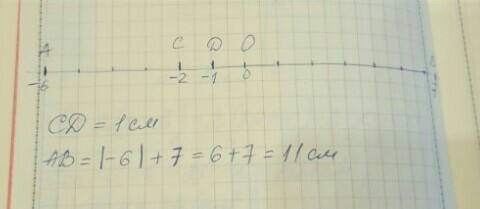 A C D O
-6 -2 -1 0
CD = 1 см
AB = |-6| + 7 = 6 + 7 = 11 см